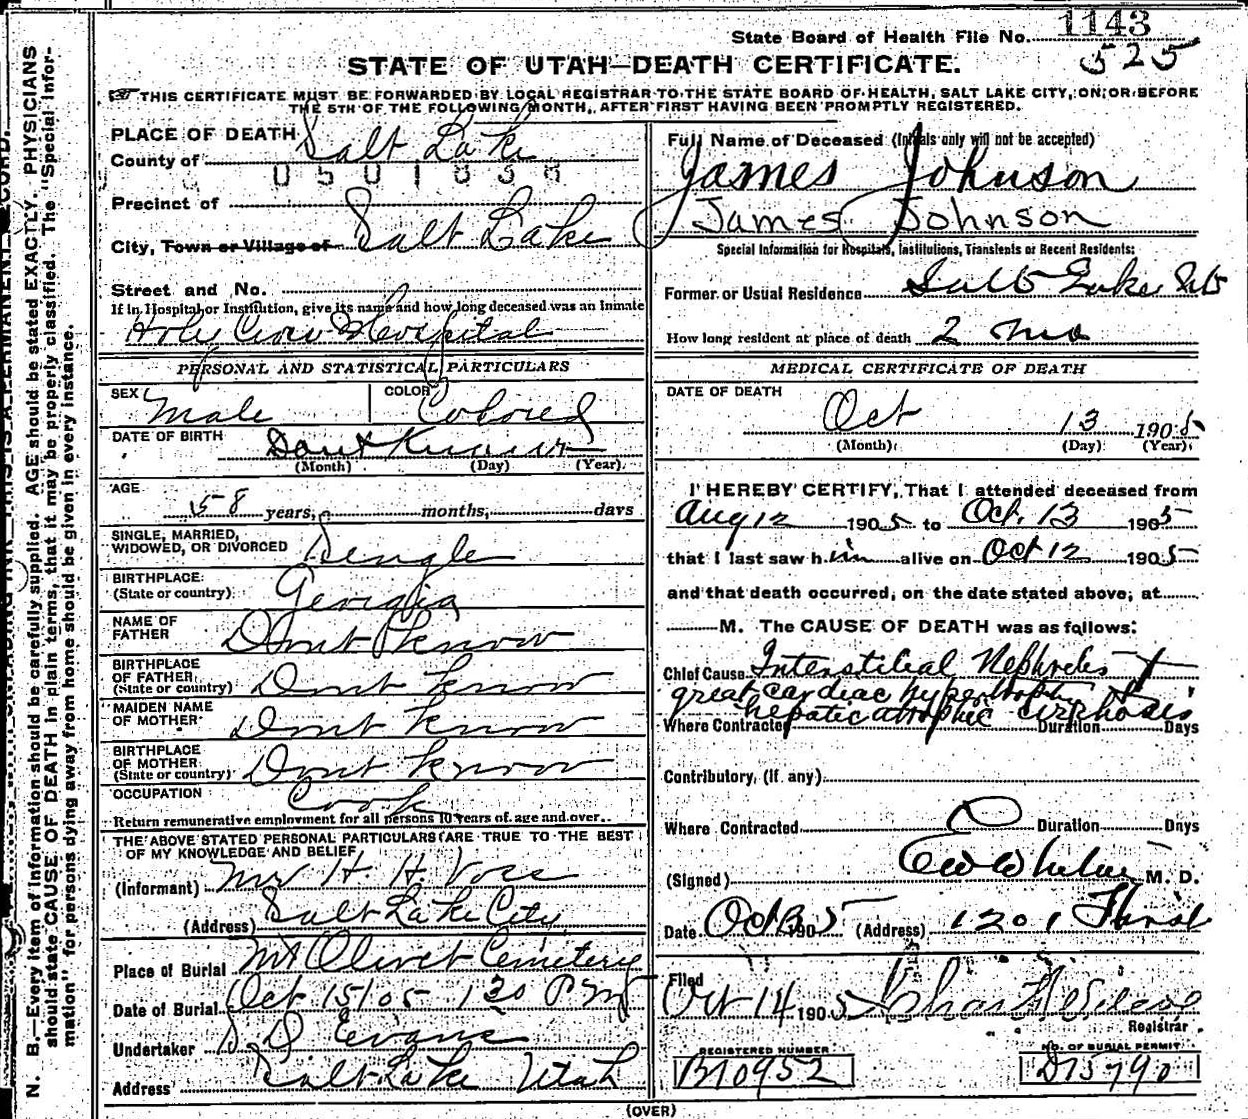 State Board of Health File No. 1143
525
STATE OF UTAH—DEATH CERTIFICATE.
THIS CERTIFICATE MUST BE FORWARDED BY LOCAL REGISTRAR TO THE STATE BOARD OF HEALTH, SALT LAKE CITY, ON OR BEFORE
THE 5TH OF THE FOLLOWING MONTH, AFTER FIRST HAVING BEEN PROMPTLY REGISTERED.
N. B.—Every item of information should be carefully supplied. AGE should be stated EXACTLY. PHYSICIANS
should state CAUSE OF DEATH in plain terms, that it may be properly classified. The "Special Infor-
mation" for persons dying away from home should be given in every instance.
PLACE OF DEATH
County of Salt Lake
0501038
Precinct of
City, Town or Village of Salt Lake
Street and No.
If in Hospital or Institution, give its name and how long deceased was an Inmate
Holy Cross Hospital
PERSONAL AND STATISTICAL PARTICULARS
SEX Male COLOR Colored
DATE OF BIRTH Dont Know
(Month) (Day) (Year)
AGE
58 years, months, days
SINGLE, MARRIED,
WIDOWED, OR DIVORCED Single
BIRTHPLACE
(State or country) Georgia
NAME OF
FATHER Dont know
BIRTHPLACE
OF FATHER
(State or country) Dont know
MAIDEN NAME
OF MOTHER Dont know
BIRTHPLACE
OF MOTHER
(State or country) Dont know
OCCUPATION Cook
Return remunerative employment for all persons 10 years of age and over.
THE ABOVE STATED PERSONAL PARTICULARS ARE TRUE TO THE BEST
OF MY KNOWLEDGE AND BELIEF
(Informant) H. H. Voss
(Address) Salt Lake City
Place of Burial Mt Olivet Cemetery
Date of Burial Oct 15/05 1 30 PM
Undertaker Evans
Address Salt Lake Utah
Full Name of Deceased (Initials only will not be accepted)
James Johnson
James Johnson
Special Information for Hospitals, Institutions, Transients or Recent Residents:
Former or Usual Residence Salt Lake
How long resident at place of death 2 mo
MEDICAL CERTIFICATE OF DEATH
DATE OF DEATH
Oct 13 1905
(Month) (Day) (Year)
I HEREBY CERTIFY, That I attended deceased from
Aug 12 1905 to Oct. 13 1905
that I last saw him alive on Oct 12 1905
and that death occurred, on the date stated above, at
M. The CAUSE OF DEATH was as follows:
Chief Cause Interstitial Nephritis
great cardiac hypertrophy
hepatic atrophic cirrhosis
Where Contracted Duration Days
Contributory, (If any)
Where Contracted Duration Days
(Signed) M. D.
Date Oct 13 1905 (Address) 1201
Filed
Oct 14 1905 Chas
Registrar
REGISTERED NUMBER
B10952
NO. OF BURIAL PERMIT
D15790
(OVER)